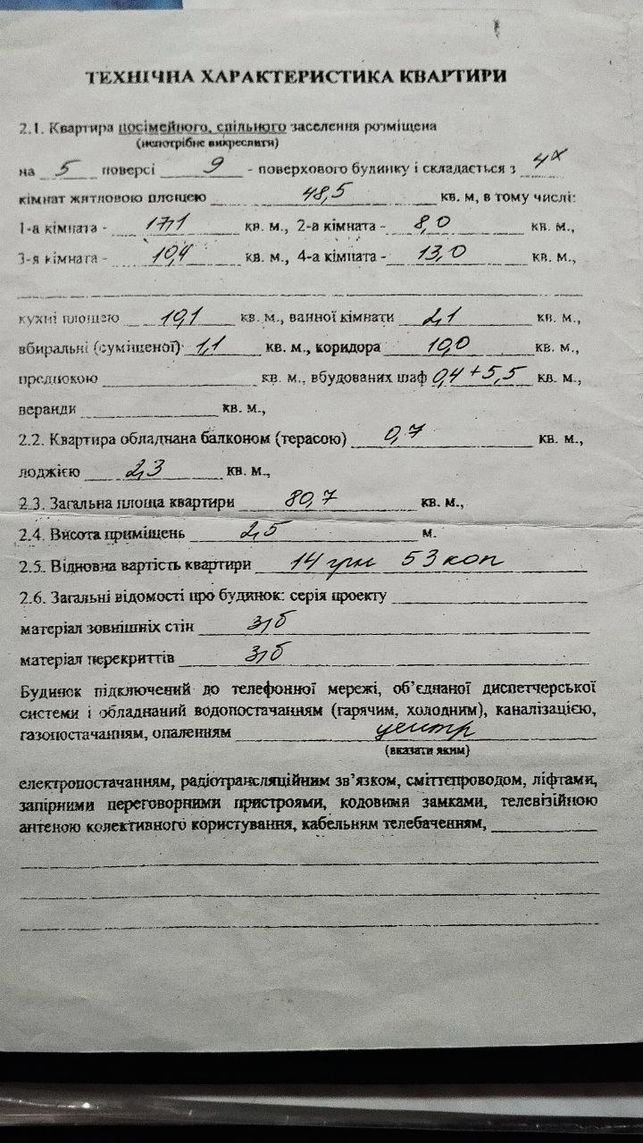 ТЕХНІЧНА ХАРАКТЕРИСТИКА КВАРТИРИ
2.1. Квартира посімейного, спільного заселення розміщена
(непотрібне викреслити)
на 5 поверсі 9 - поверхового будинку і складається з 4х
кімнат житловою площею 48,5 кв. м, в тому числі:
1-а кімната - 17,1 кв. м., 2-а кімната - 8,0 кв. м.,
3-я кімната - 10,4 кв. м., 4-а кімната - 13,0 кв. м.,
кухні площею 10,1 кв. м., ванної кімнати 2,1 кв. м.,
вбиральні (суміщеної) 1,1 кв. м., коридора 10,0 кв. м.,
передпокою кв. м., вбудованих шаф 0,4 + 5,5 кв. м.,
веранди кв. м.,
2.2. Квартира обладнана балконом (терасою) 0,7 кв. м.,
лоджією 2,3 кв. м.,
2.3. Загальна площа квартири 80,7 кв. м.,
2.4. Висота приміщень 2,5 м.
2.5. Відновна вартість квартири 14 грн 53 коп
2.6. Загальні відомості про будинок: серія проекту
матеріал зовнішніх стін з/б
матеріал перекриттів з/б
Будинок підключений до телефонної мережі, об’єднаної диспетчерської
системи і обладнаний водопостачанням (гарячим, холодним), каналізацією,
газопостачанням, опаленням центр
(вказати яким)
електропостачанням, радіотрансляційним зв’язком, сміттєпроводом, ліфтами,
запірними переговорними пристроями, кодовими замками, телевізійною
антеною колективного користування, кабельним телебаченням,